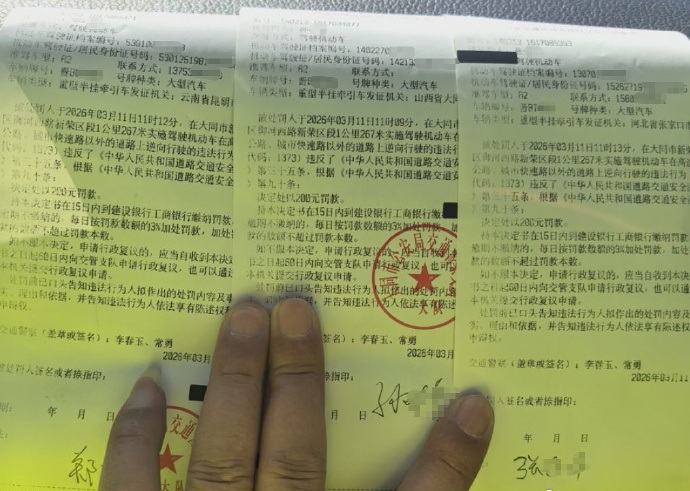 驾驶机动车
机动车驾驶证档案编号：530102
机动车驾驶证/居民身份证号码：530125198
准驾车型：A2 联系方式：13753
车辆牌号：晋 号牌种类：大型汽车
车辆类型：重型半挂牵引车发证机关：云南省昆明
被处罚人于2026年03月11日11时12分，在大同市新
区御河西路新荣区段1公里267米实施驾驶机动车在高
公路、城市快速路以外的道路上逆向行驶的违法行为
代码：1373）违反了《中华人民共和国道路交通安全
三十五条，根据《中华人民共和国道路交通安全
第九十条：
决定处以200元罚款。
持本决定书在15日内到建设银行工商银行缴纳罚款
逾期不缴纳的，每日按罚款数额的3%加处罚款，加处罚
款不超过罚款本数。
如不服本决定，申请行政复议的，应当自收到本决
书之日起60日内向交管支队申请行政复议，也可以通
本机关提交行政复议申请。
处罚前已口头告知违法行为人拟作出的处罚内容及事
理由和依据，并告知违法行为人依法享有陈述权
申辩权。
交通警察（盖章或签名）：李春玉、常勇
2026年03月
处罚人签名或者捺指印：
年 月 日
郑
大队
驾驶机动车
机动车驾驶证档案编号：1402270
机动车驾驶证/居民身份证号码：14213
准驾车型：A2 联系方式：
车辆牌号：晋 号牌种类：大型汽车
车辆类型：重型半挂牵引车发证机关：山西省大同
被处罚人于2026年03月11日11时09分，在大同市新
区御河西路新荣区段1公里267米实施驾驶机动车在高
公路、城市快速路以外的道路上逆向行驶的违法行为
代码：1373）违反了《中华人民共和国道路交通安全
三十五条，根据《中华人民共和国道路交通安全
第九十条：
决定处以200元罚款。
持本决定书在15日内到建设银行工商银行缴纳
逾期不缴纳的，每日按罚款数额的3%加处罚款，
款的数额不超过罚款本数。
如不服本决定，申请行政复议的，应当自收到
书之日起60日内向交管支队申请行政复议，也可
本机关提交行政复议申请。
处罚前已口头告知违法行为人拟作出的处罚内
理由和依据，并告知违法行为人依法享有
申辩权。
交通警察（盖章或签名）：李春玉、常勇
2026年03月11
签名或者捺指印：
年 月 日
同市公安局交通
大队
驾驶机动车
机动车驾驶证档案编号：13070
机动车驾驶证/居民身份证号码：15262719
准驾车型：A2 联系方式：156
车辆牌号： 号牌种类：大型汽车
车辆类型：重型半挂牵引车发证机关：河北省张家口
被处罚人于2026年03月11日11时13分，在大同市新
区御河西路新荣区段1公里267米实施驾驶机动车在高
公路、城市快速路以外的道路上逆向行驶的违法行为
代码：1373）违反了《中华人民共和国道路交通安全
三十五条，根据《中华人民共和国道路交通安全
第九十条：
决定处以200元罚款。
持本决定书在15日内到建设银行工商银行缴纳罚款
逾期不缴纳的，每日按罚款数额的3%加处罚款，加处
款的数额不超过罚款本数。
如不服本决定，申请行政复议的，应当自收到本决
书之日起60日内向交管支队申请行政复议，也可以通
本机关提交行政复议申请。
处罚前已口头告知违法行为人拟作出的处罚内容及
实、理由和依据，并告知违法行为人依法享有陈述权
申辩权。
交通警察（盖章或签名）：李春玉、常勇
2026年03月11
罚人签名或者捺指印：
年 月 日
张